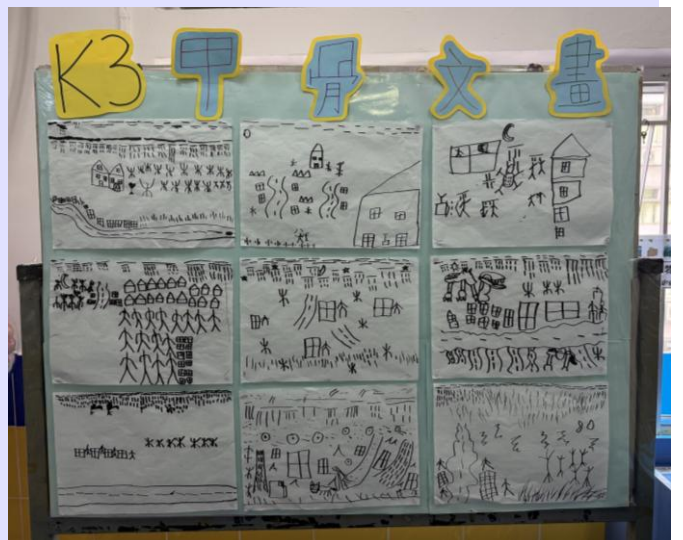 K3 甲骨文畫